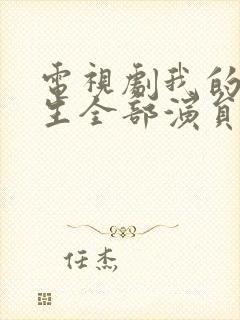 電視劇我的
生全部演員
任杰